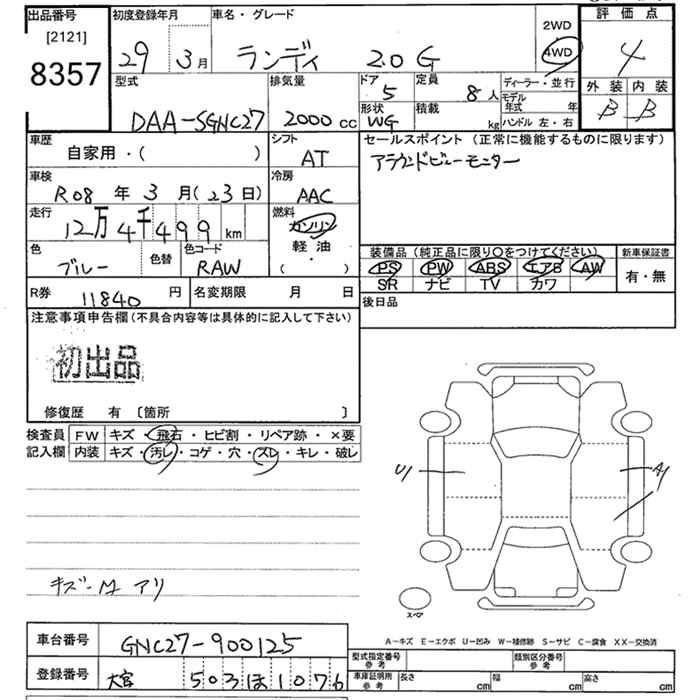 出品番号
[2121]
8357
初度登録年月
29 3月
車名・グレード
ランディ 2.0 G
2WD
4WD
評価点
4
外装 内装
B B
型式
DAA-SGNC27
排気量
2000 cc
ドア
5
定員
8人
形状
WG
積載
kg
ディーラー・並行
モデル
年式 年
ハンドル 左・右
車歴
自家用・( )
シフト
AT
車検
R08年 3月(23日)
冷房
AAC
走行
12万4千499km
燃料
ガソリン
軽油
・
( )
色
ブルー
色替
色コード
RAW
セールスポイント(正常に機能するものに限ります)
アラウンドビューモニター
装備品(純正品に限り○をつけてください)
PS PW ABS エアB AW
SR ナビ TV カワ
新車保証書
有・無
R券
11840円
名変期限 月 日
後日品
注意事項申告欄(不具合内容等は具体的に記入して下さい)
初出品
修復歴 有 〔箇所 〕
検査員
記入欄
FW キズ・飛石・ヒビ割・リペア跡・×要
内装 キズ・汚レ・コゲ・穴・スレ・キレ・破レ
U1
A1
スペア
キズ-M アリ
A-キズ E-エクボ U-凹み W-補修跡 S-サビ C-腐食 XX-交換済
車台番号
GNC27-900125
登録番号
大宮 503ほ1076
型式指定番号
参考
類別区分番号
参考
車庫証明所
参考
長さ cm
幅 cm
高さ cm